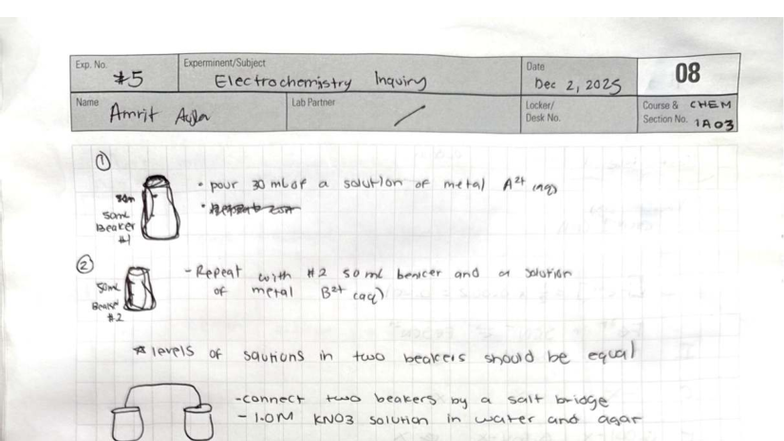 Exp. No. Experminent/Subject Date 08
#5 Electrochemistry Inquiry Dec 2, 2025
Name Lab Partner Locker/ Course & CHEM
Amrit Desk No. Section No. 1A03
①
• pour 30 mL of a solution of metal A²⁺ (aq)
50mL
Beaker
#1
②
- Repeat with #2 50 ml beaker and a solution
of metal B²⁺ (aq)
50mL
Beaker
#2
* levels of soutions in two beakers should be equal
- connect two beakers by a salt bridge
- 1.0M KNO3 solution in water and agar